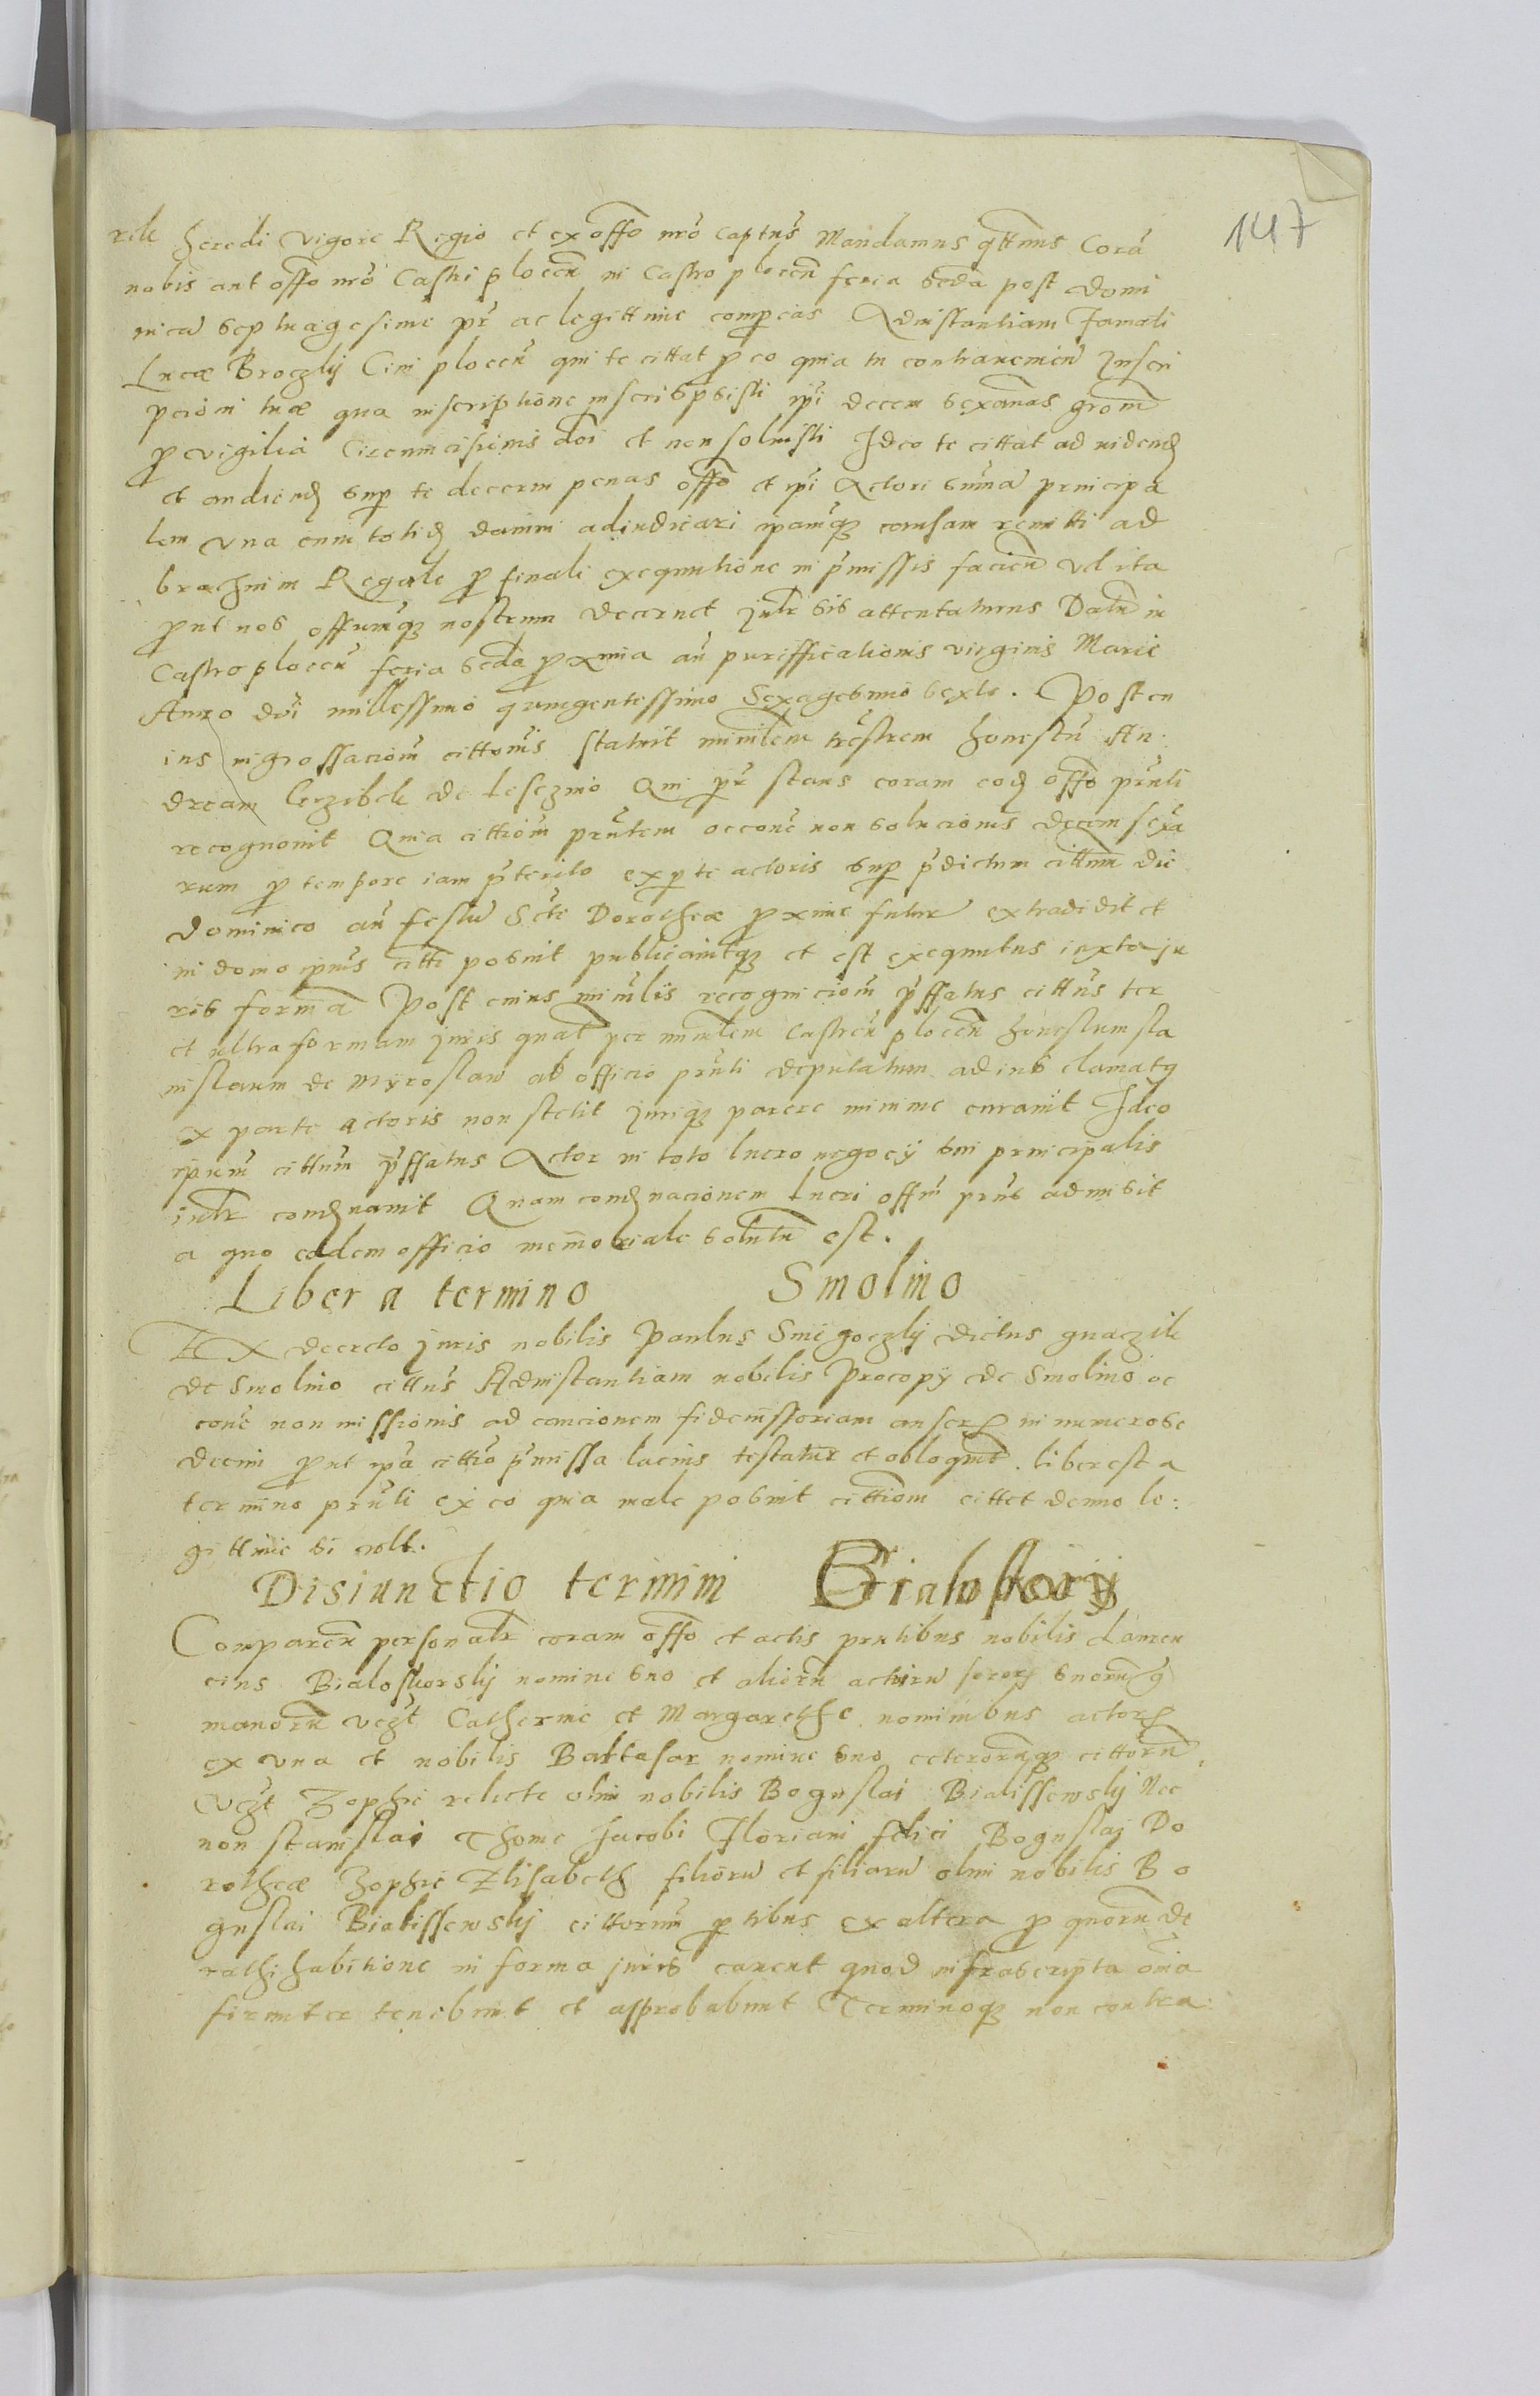 147
rele heredi vigore Regio et ex offo nro captus Mandamus qttnus Corā
nobis aut offo nro Castri plocen̄ in Castro plocen̄ feria scda post domi
nicā septuagesime pr̄ ac legittime compeias Ad instantiam famati
Lucæ Broczky Civi plocen̄ qui te cittat p eo quia tu contravemen̄ Inscri
pcioni tuæ qua inscriptione inscripsisti ipi decem sexanas grom̄
p vigilia Circumcisionis doi et non solvisti Ideo te cittat ad videnđ
et audienđ sup te decerni penas offo et ipi Actori sum̄ā principa
lem vna cum totiđ damni adiudicari ipamq causam remitti ad
brachium Regale p finali exequutione in p̄missis facien̄ vel ita
prout nos offiumq nostrum decernet Iudr sis attentaturus Datū in
Castro plocen̄ feria scda proxima an̄ puriffictionis virginis Marie
Anno dn̄i millessimo quingentessimo Sexagesimo sexto. Post cu
ius ingrossaciōm cittonis statuit minrlem trestrem honestū An
dream Cerzibek de Lesczino Qui pr̄ stans coram eođ offo prn̄ti
recognovit Quia cittiom̄ prn̄tem occone non solucionis decem sexa
rum p tempore iam p̄terito ex pte actoris sup p̄dictum cittum die
dominico an̄ festū Scte Dorotheæ proxime futur extradidit et
in domo ipius citti posuit publicavitq et est exequutus iuxta ju
ris formā Post cuius minrlis recogniciom̄ p̄ffatus cittus ter
et ultra formam Juris quat per minrlem Castren̄ plocen̄ honestum sta
nislaum de Myroslaw ab officio prn̄ti deputatum ad ius clamatg
ex parte actoris non stetit Juriq parere minime curavit Ideo
ipum cittum p̄ffatus Actor in toto lucro negocy sui principalis
iudr comđnavit Quam comđnacionem Lucri offm prn̄s admisit
a quo eadem officio memoriale solutū est.
Liber a termino Smolino
EX decreto Juris nobilis Paulus Smigoczky dictus gnaczik
de Smolino cittus Ad instantiam nobilis Procopy de Smolino oc
cone non missionis ad caucionem fideiussoriam anserp in numero se
decim prout ipa cittio p̄missa lacius testatur et obloqut. liber est a
termino prn̄ti ex eo quia male posuit cittiom cittet denuo le:
gittime si volt.
Disiunctio termini Bialoskory
Comparen̄ personatr coram offo et actis prntibus nobilis Lauren
cius Bialoskorsky nomine suo et aliorū actorū soror suorū g
manorū vezt Catherine et Margarethe nominibus actorp
ex vna et nobilis Baltasar nomine suo ceterorūq cittorū
vezt Zophie relicte olim nobilis Boguslai Bialissewsky Nec
non stanislai Thome Jacobi Floriani felici Boguslai Do
rotheæ Zophie Elisabeth filiorū et filiarū olim nobilis Bo
guslai Bialissewsky cittorum ptibus ex altera p quorū de
rathihabitione in forma juris cavent quod infrascripta omā
firmiter tenebunt et approbabunt Terminoq non contra: